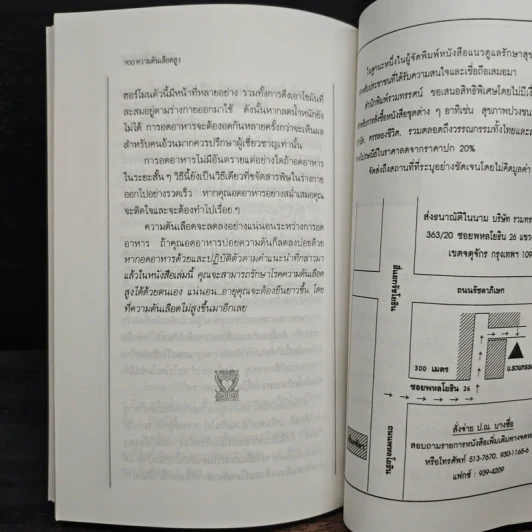 100 ความดันเลือดสูง
ฮอร์โมนตัวนี้มีหน้าที่หลายอย่าง รวมทั้งการดึงเอาไขมันที่
สะสมอยู่ตามร่างกายออกมาใช้ ดังนั้นหากลดน้ำหนักยัง
ไม่ได้ การอดอาหารจะต้องอดกันหลายครั้งกว่าจะเห็นผล
สำหรับคนอ้วนมากควรปรึกษาผู้เชี่ยวชาญเท่านั้น
การอดอาหารไม่มีอันตรายแต่อย่างใดถ้าอดอาหาร
ในระยะสั้น ๆ วิธีนี้ยังเป็นวิธีเดียวที่ขจัดสารพิษในร่างกาย
ออกไปอย่างรวดเร็ว หากคุณอดอาหารอย่างสม่ำเสมอคุณ
จะติดใจและจะต้องทำไปเรื่อย ๆ
ความดันเลือดจะลดลงอย่างแน่นอนระหว่างการอด
อาหาร ถ้าคุณอดอาหารบ่อยความดันก็ลดลงบ่อยด้วย
หากอดอาหารด้วยและปฏิบัติตัวตามคำแนะนำที่กล่าวมา
แล้วในหนังสือเล่มนี้ คุณจะสามารถรักษาโรคความดันเลือด
สูงได้ด้วยตนเอง แน่นอน..อายุคุณจะต้องยืนยาวขึ้น โดย
ที่ความดันเลือดไม่สูงขึ้นมาอีกเลย
ในฐานะหนึ่งในผู้จัดพิมพ์หนังสือแนวดูแลรักษาสุข
ประชาชนที่ได้รับความสนใจและเชื่อถือเสมอมา
สำนักพิมพ์รวมทรรศน์ ขอเสนอสิทธิพิเศษโดยไม่มีเงื่
การสั่งซื้อหนังสือชุดต่าง ๆ อาทิเช่น สุขภาพปวงชน
ครรลองชีวิต, รวมตลอดถึงวรรณกรรมทั้งไทยและ
ไปรษณีย์ในราคาลดจากราคาปก 20%
จัดส่งถึงสถานที่ที่ระบุอย่างชัดเจนโดยไม่คิดมูลค่า
ส่งธนาณัติในนาม บริษัท รวมทร
363/20 ซอยพหลโยธิน 26 แขว
เขตจตุจักร กรุงเทพฯ 109
ถนนรัชดาภิเษก
300 เมตร
ซอยพหลโยธิน 26
ถนนพหลโยธิน
สั่งจ่าย ป.ณ. บางซื่อ
สอบถามรายการหนังสือเพิ่มเติมทางจดห
หรือโทรศัพท์ 513-7670, 930-1165-6
แฟกซ์ : 939-4209